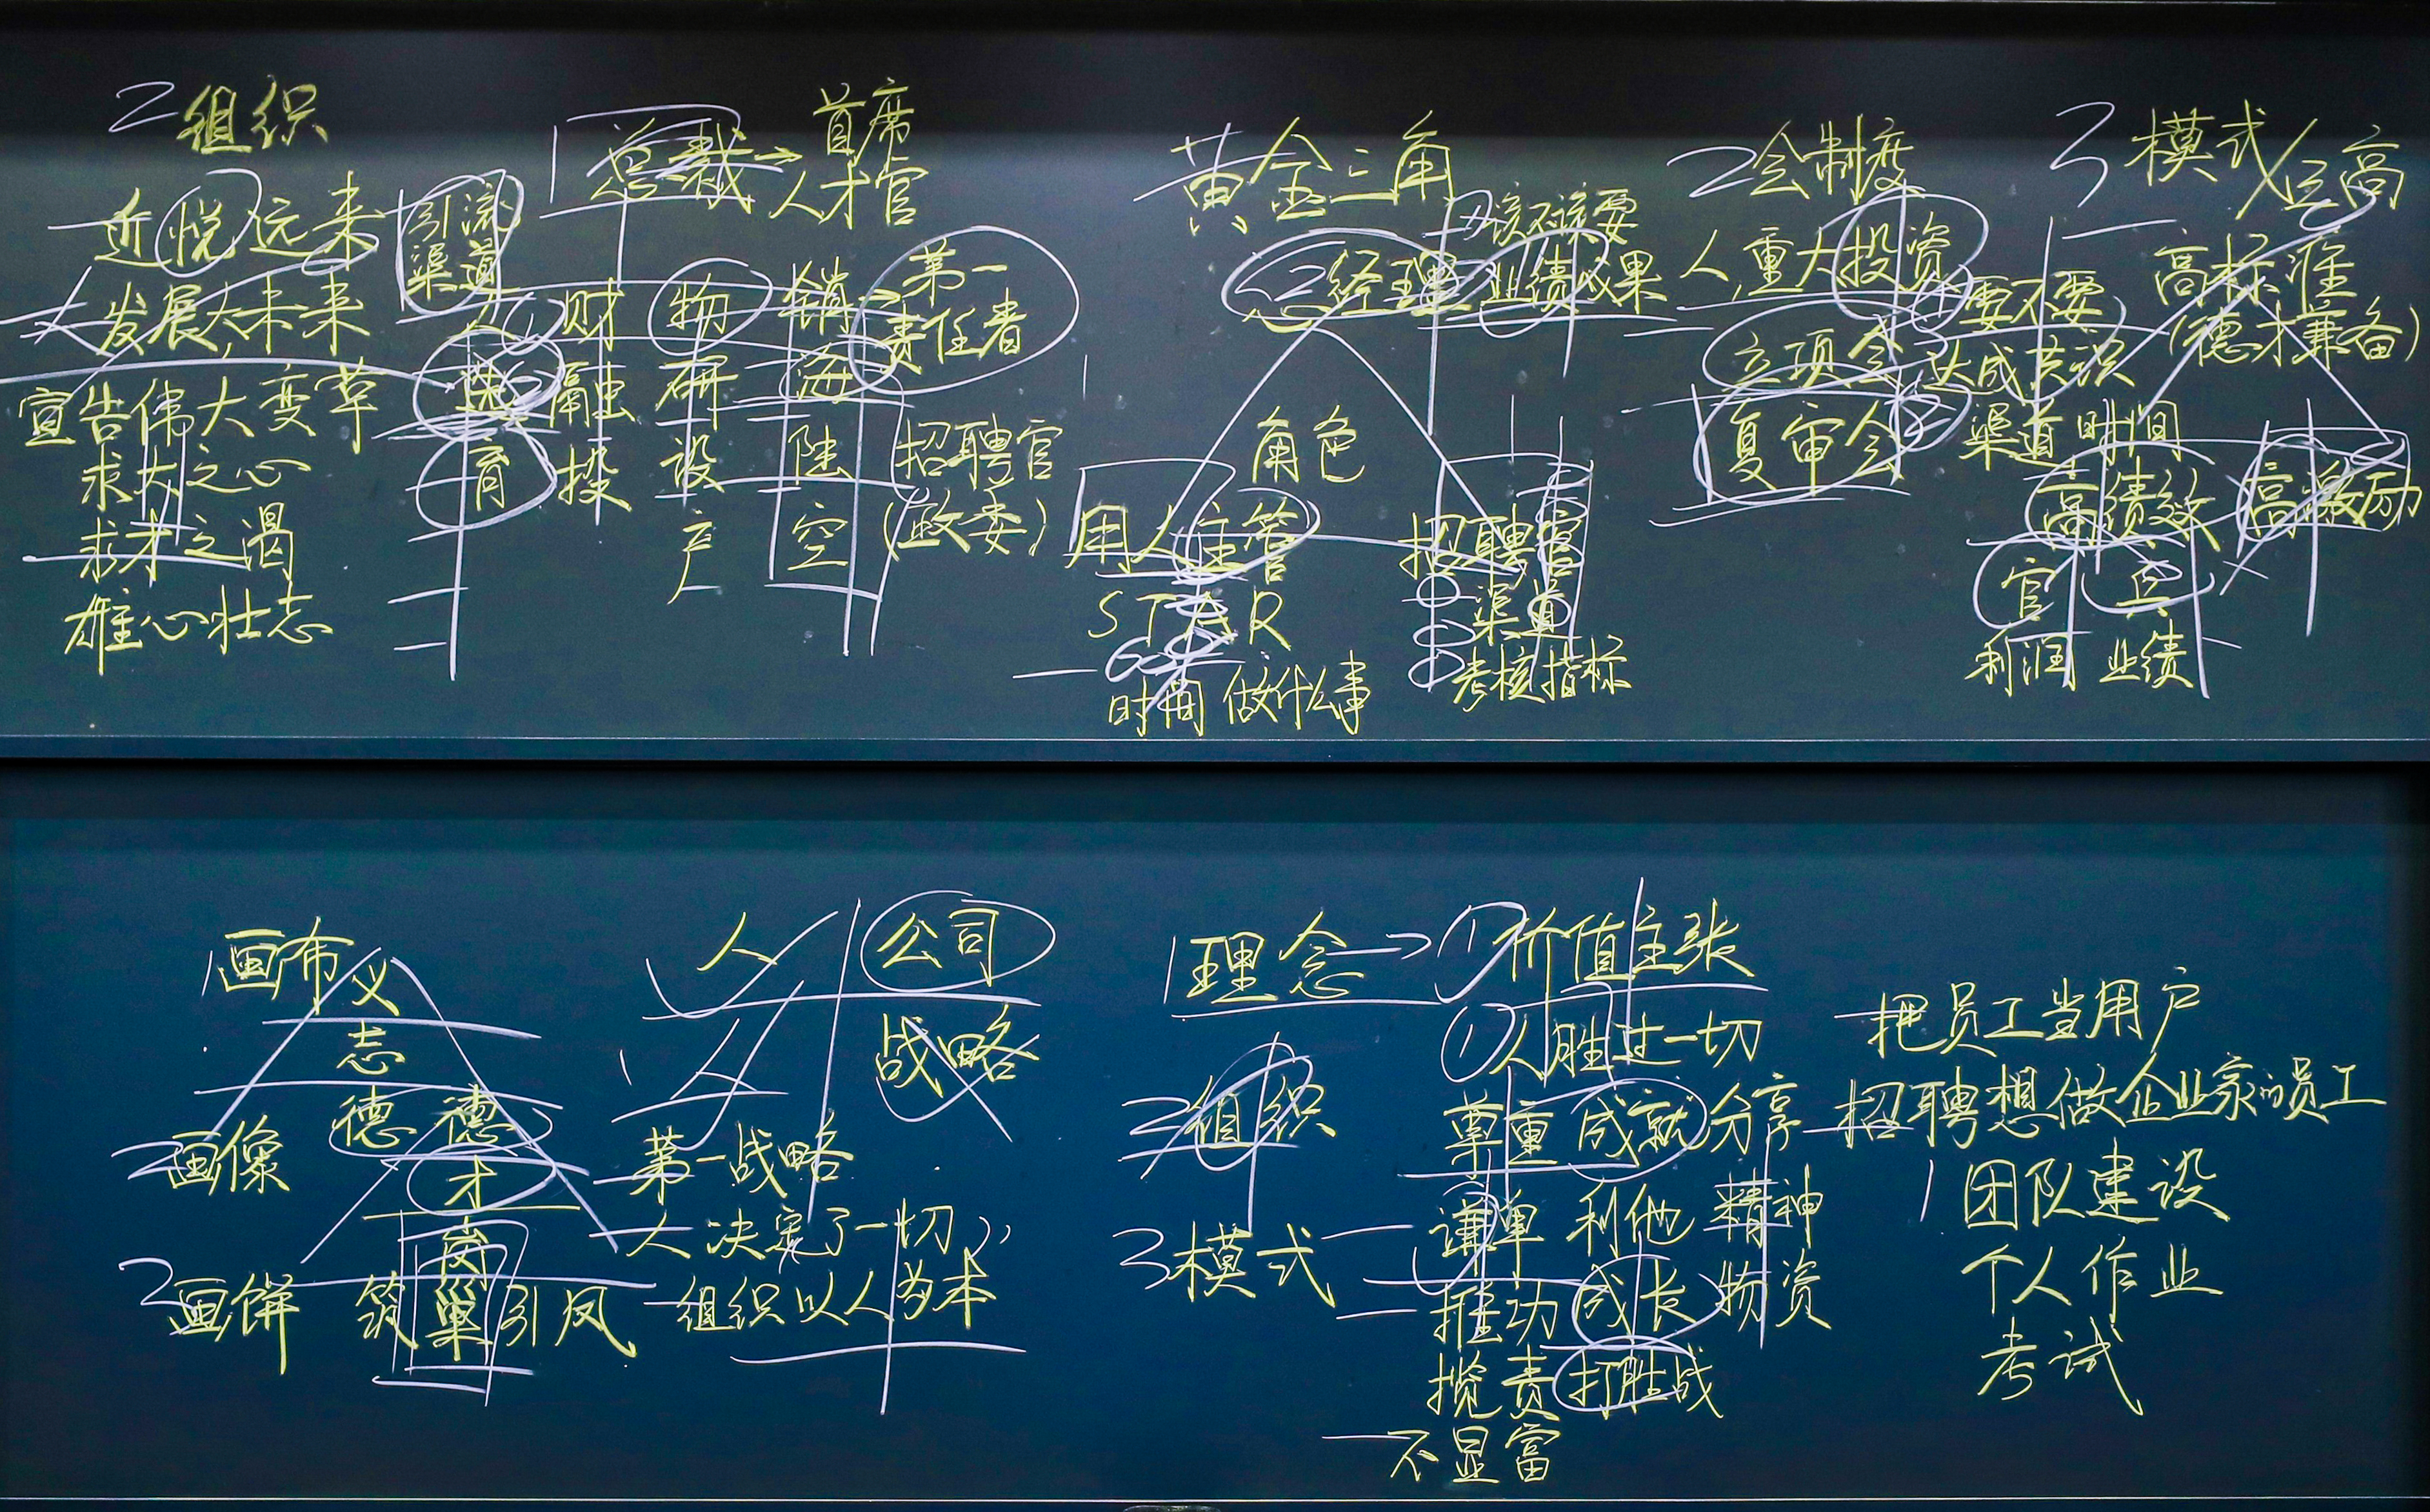 2 组织
近悦远来
发展大未来
宣告伟大变革
求大之心
求才之渴
雄心壮志
引流
渠道
1 总裁→首席
人才官
人 财 物 销 第一
责任者
融 研 海
育 投 设 陆 招聘官
产 空 (政委)
黄金三角
①该不该要
②经理 业绩成果
角色
用人主管 招聘官
STAR 渠道
时间 做什么事 考核指标
2 会制度
人,重大投资
要不要
立项会 达成共识
复审会 渠道 时间
3 模式/三高
高标准
(德才兼备)
高绩效 高激励
官 兵
利润 业绩
1 画布 义
志
德 德
2 画像 才
岗
3 画饼 筑巢引凤
人 公司
战略
第一战略
人决定了一切
组织以人为本
1 理念→①价值主张
①人胜过一切
2 组织 尊重 成就 分享
3 模式 谦卑 利他 精神
推功 成长 物资
揽责 打胜战
不显富
把员工当用户
招聘想做企业家的员工
1 团队建设
个人作业
考试